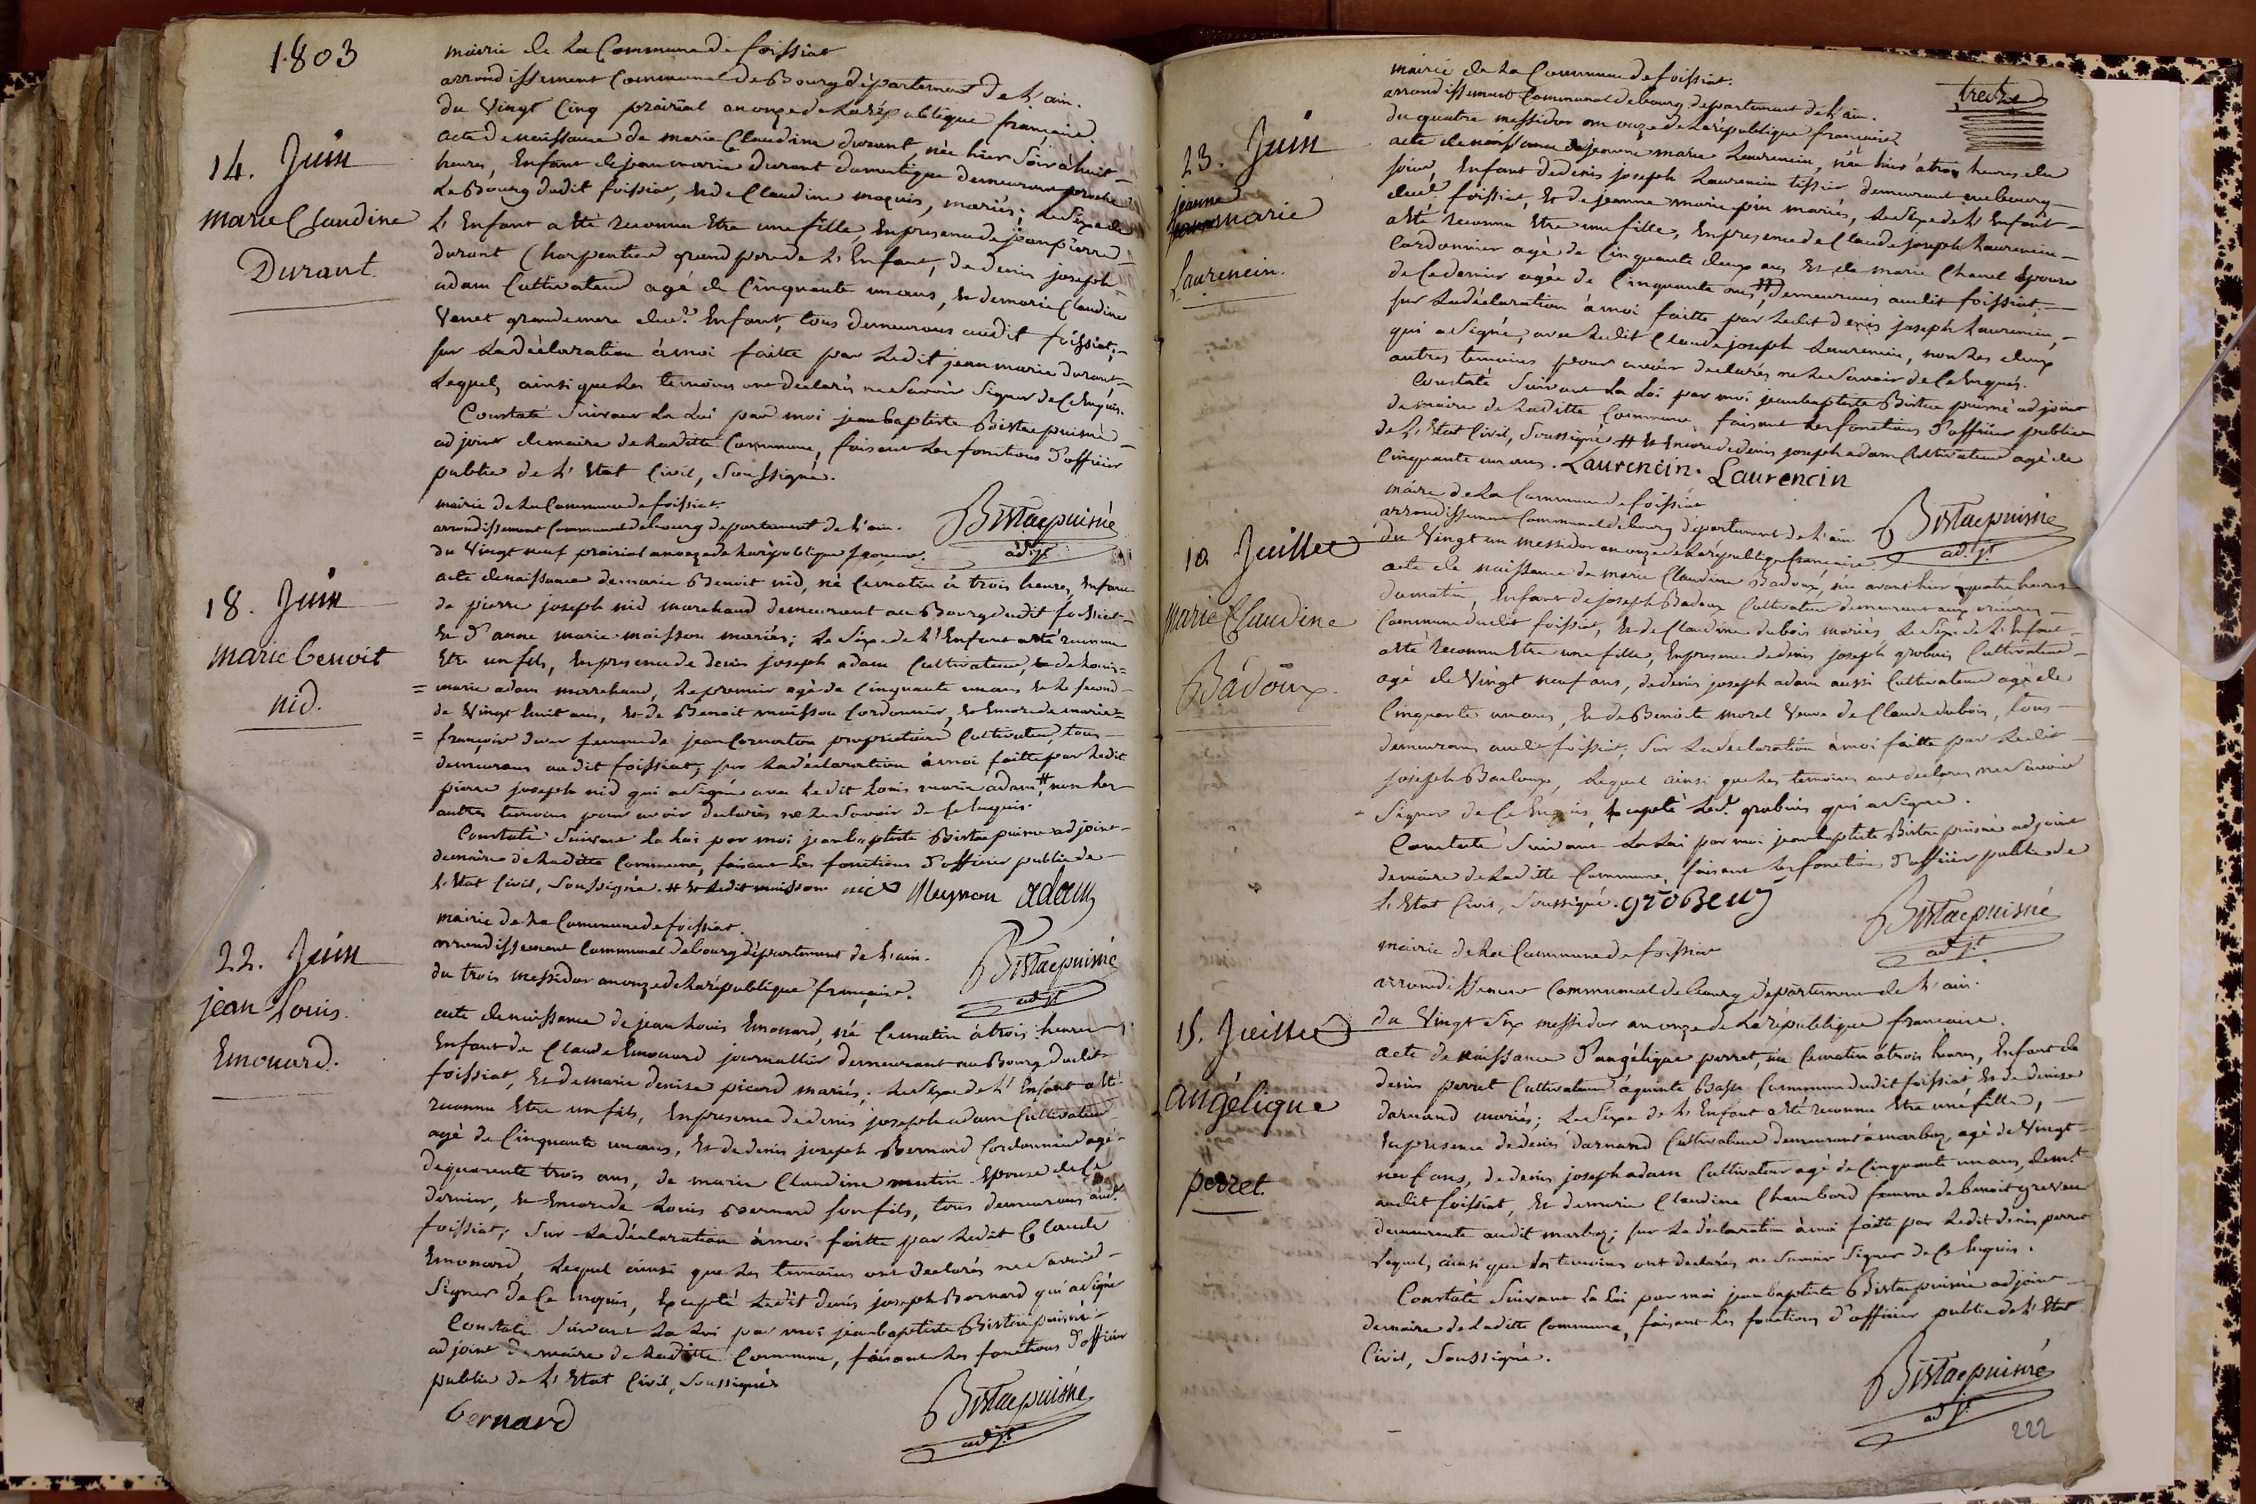 1803
mairie de La Commune de foissiat
arrondissement Communal de Bourg département de L'ain.
du Vingt Cinq prairial an onze de La république française
14. Juin
marie Claudine
Durant
acte de naissance de marie Claudine durant, née hier Soir à huit
heures, Enfant de jean marie durant domestique demeurant proche
Le Bourg dudit foissiat, et de Claudine maquis, mariés; Le Sexe de
L'Enfant a été reconnu Etre une fille, En presence de jean pierre
durant Charpentier grand pere de L'Enfant, de denis joseph
adam Cultivateur agé de Cinquante un ans, et de marie Claudine
Venet grande mere dud.t Enfant, tous demeurans audit foissiat;
sur La déclaration à moi faitte par Ledit jean marie durant
Lequel, ainsi que Les temoins ont declarés ne Savoir Signer de Ce Enquis.
Constaté Suivant La Loi par moi jean baptiste Bistac puisné
adjoint de maire de Laditte Commune, faisant Les fonctions d'officier
public de L'Etat Civil, Soussigné.
Bistac puisné
adj.t
mairie de La Commune de foissiat.
arrondissement Communal de bourg département de L'ain.
du Vingt neuf prairial an onze de La république française.
18. Juin
marie benoit
nid.
acte de naissance de marie Benoit nid, né Ce matin à trois heures, Enfant
de pierre joseph nid marchand demeurant au Bourg dudit foissiat
Et d'anne marie maisson mariés; Le Sexe de L'Enfant a été reconnu
Etre un fils, En presence de denis joseph adam Cultivateur, et de Louis=
= marie adam marchand, Le premier agé de Cinquante un ans et Le Second
de Vingt huit ans, et de Benoit maisson Cordonnier, et Encore de marie=
= françoise femme de jean Cornaton proprietaire Cultivateur, tous
demeurans audit foissiat; sur La déclaration à moi faitte par Ledit
pierre joseph nid qui a Signé avec Ledit Louis marie adam, # non Les
autres temoins pour avoir declarés ne Le Savoir de Ce Enquis.
Constaté Suivant La Loi par moi jean baptiste Bistac puisné adjoint
de maire de Laditte Commune, faisant Les fonctions d'officier public de
L'Etat Civil, Soussigné. # et Ledit maisson nid Meysson adam
Bistac puisné
adj.t
mairie de La Commune de foissiat.
arrondissement Communal de bourg département de L'ain.
du trois messidor an onze de La république française.
22. Juin
jean Louis.
Emonard.
acte de naissance de jean Louis Emonard, né Ce matin à trois heures
Enfant de Claude Emonard journallier demeurant au Bourg dudit
foissiat, Et de marie denise picard mariés; Le Sexe de L'Enfant a été
reconnu Etre un fils, En presence de denis joseph adam Cultivateur
agé de Cinquante un ans, Et de denis joseph Bernard Cordonnier agé
de quarante trois ans, de marie Claudine mutin Epouse de Ce
dernier, et Encore de Louis Bernard son fils, tous demeurans aud.t
foissiat; Sur La déclaration à moi faitte par Ledit Claude
Emonard, Lequel ainsi que Les temoins ont declarés ne Savoir
Signer de Ce Enquis, Excepté Ledit denis joseph Bernard qui a Signé
Constaté Suivant La Loi par moi jean baptiste Bistac puisné
adjoint de maire de Laditte Commune, faisant Les fonctions d'officier
public de L'Etat Civil, Soussigné
bernard
Bistac puisné
adj.t
mairie de La Commune de foissiat.
arrondissement Communal de bourg département de L'ain.
du quatre messidor an onze de La république française
treize
23. Juin
jeanne
marie
Laurencin.
acte de naissance de jeanne marie Laurencin, née hier à trois heures du
soir, Enfant de denis joseph Laurencin tissier demeurant au bourg
dud.t foissiat, Et de jeanne marie mariés, Le Sexe de L'Enfant
a été reconnu Etre une fille, En presence de Claude joseph Laurencin
Cordonnier agé de Cinquante deux ans Et de marie Chanel Epouse
de Ce dernier agée de Cinquante ans, # demeurans audit foissiat;
sur La déclaration à moi faitte par Ledit denis joseph Laurencin,
qui a Signé, avec Ledit Claude joseph Laurencin, non Les deux
autres temoins pour avoir declarés ne Le Savoir de Ce Enquis.
Constaté Suivant La Loi par moi jean baptiste Bistac puisné adjoint
de maire de Laditte Commune, faisant Les fonctions d'officier public
de L'Etat Civil, Soussigné # Et Encore de denis joseph adam Cultivateur agé de
Cinquante un ans. Laurencin. Laurencin
Bistac puisné
adj.t
maire de La Commune de foissiat
arrondissement Communal de bourg département de L'ain
du Vingt un messidor an onze de La république française.
10 Juillet
marie Claudine
Badoux.
acte de naissance de marie Claudine Badoux, née avant hier à quatre heures
du matin, Enfant de joseph Badoux Cultivateur demeurant aux
Commune dudit foissiat, Et de Claudine dubois mariés Le Sexe de L'Enfant
a été reconnu Etre une fille, En presence de denis joseph grobuis Cultivateur
agé de Vingt neuf ans, de denis joseph adam aussi Cultivateur agé de
Cinquante un ans, Et de Benoite morel Veuve de Claude dubois, tous
demeurans audit foissiat, Sur La déclaration à moi faitte par Ledit
joseph Badoux, Lequel ainsi que Les temoins ont declarés ne Savoir
Signer de Ce Enquis, Excepté Led.t grobuis qui a Signé.
Constaté Suivant La Loi par moi jean baptiste Bistac puisné adjoint
de maire de Laditte Commune, faisant Les fonctions d'officier public de
L'Etat Civil, Soussigné.
Bistac puisné
adj.t
mairie de La Commune de foissiat
arrondissement Communal de bourg département de L'ain.
du Vingt Six messidor an onze de La république française.
15. Juillet
angélique
perret.
acte de naissance d'angélique perret, née Ce matin à trois heures, Enfant de
denis perret Cultivateur à Basse Commune dudit foissiat Et de denise
darnand mariés; Le Sexe de L'Enfant a été reconnu Etre une fille,
En presence de denis darnand Cultivateur demeurant à marboz, agé de Vingt
neuf ans, de denis joseph adam Cultivateur agé de Cinquante un ans, dem.t
audit foissiat, Et de marie Claudine Chambard femme de benoit
demeurante audit marboz; sur La déclaration à moi faitte par Ledit denis perret
Lequel, ainsi que Les temoins ont declarés ne Savoir Signer de Ce Enquis.
Constaté Suivant La Loi par moi jean baptiste Bistac puisné adjoint
de maire de Laditte Commune, faisant Les fonctions d'officier public de L'Etat
Civil, Soussigné.
Bistac puisné
adj.t
222